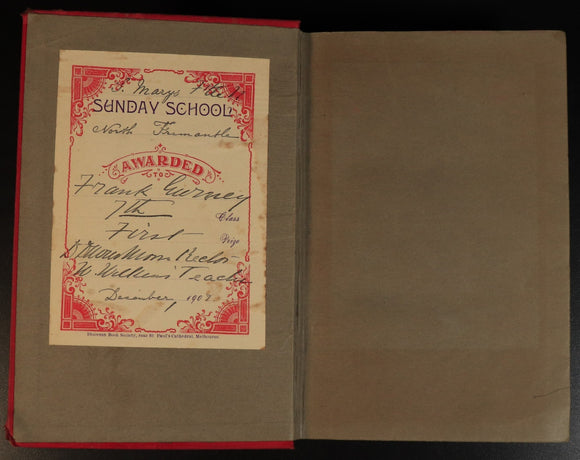 St Marys
SUNDAY SCHOOL
North Fremantle
AWARDED
TO
Frank Gurney
7th Class
First Prize
Rector
W Wilkins Teacher
December, 190
Diocesan Book Society, near St. Paul's Cathedral, Melbourne